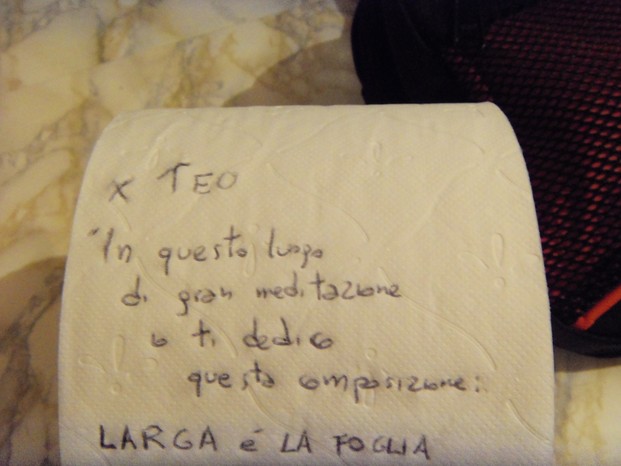 x TEO
"In questo luogo
di gran meditazione
io ti dedico
questa composizione:
LARGA è LA FOGLIA